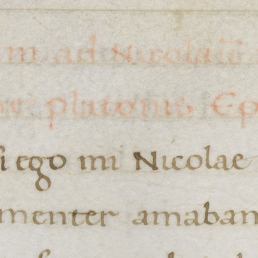 m ad Nicolaū
platonis Ep
si ego mi Nicolae
menter amabam